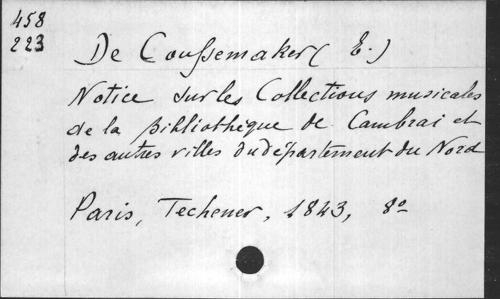 458
223
De Coussemaker (E.)
Notice sur les Collections musicales
de la Bibliothèque de Cambrai et
des autres villes du département du Nord
Paris, Techener, 1843, 8º